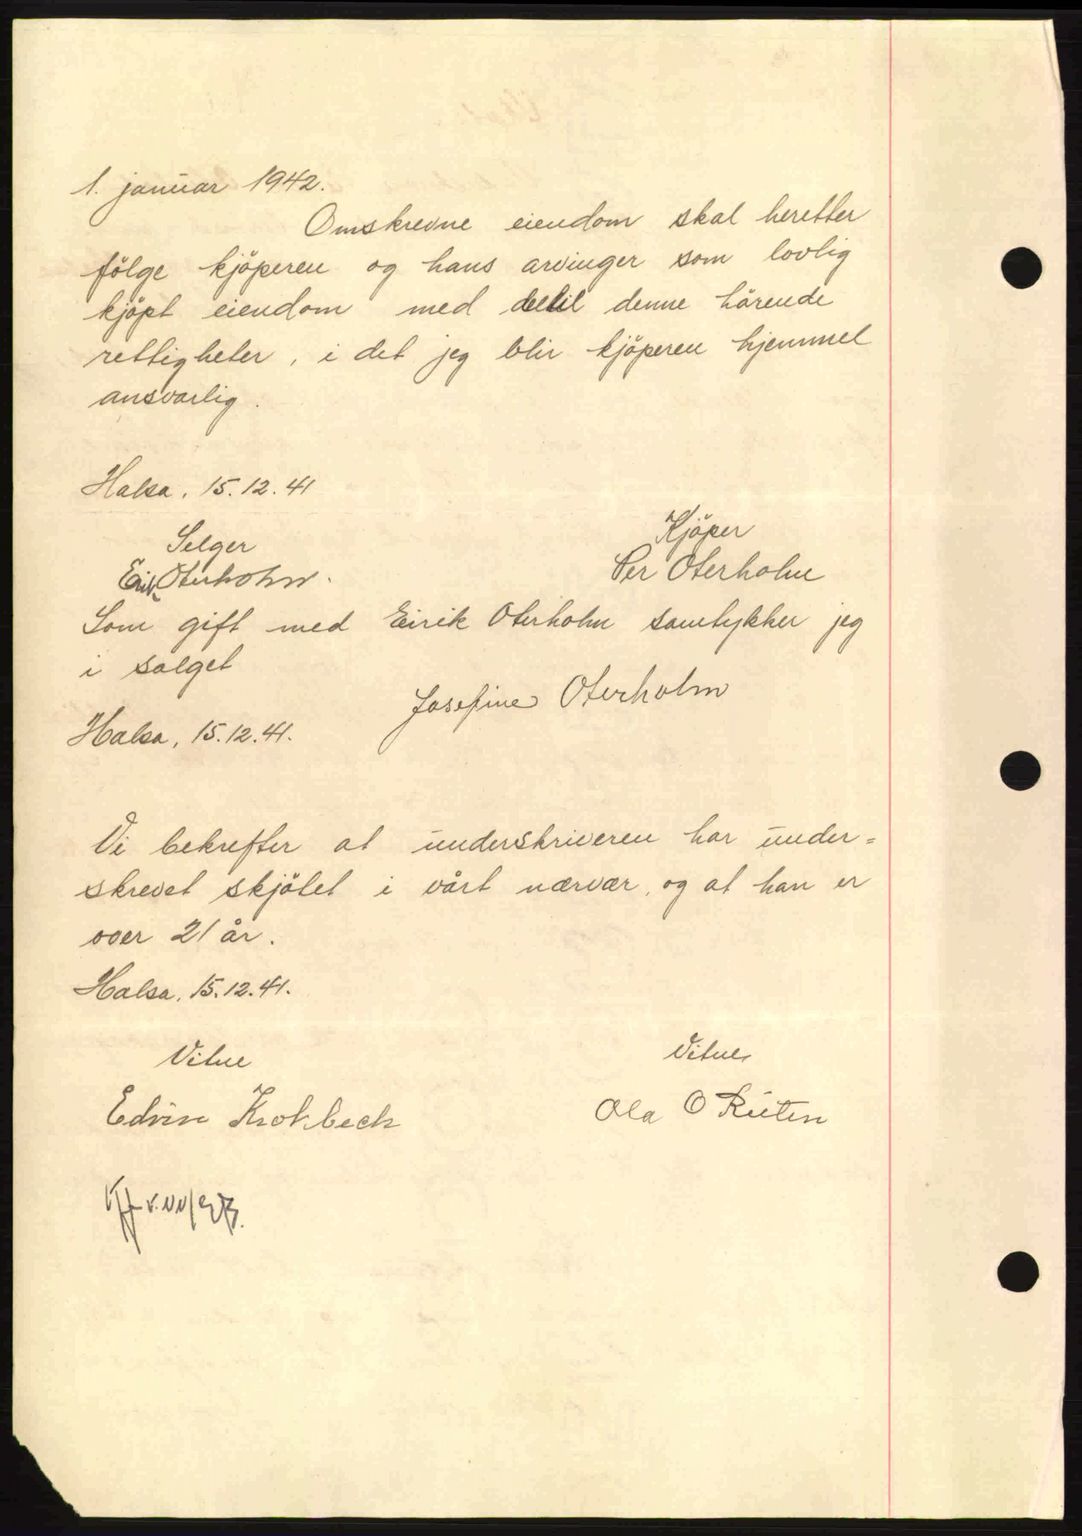 1. januar 1942.
Omskrevne eiendom skal heretter
følge kjöperen og hans arvinger som lovlig
kjöpt eiendom med deltil denne hörende
rettigheter, i det jeg blir kjöperen hjemmel
ansvarlig.
Halsa, 15.12.41
Selger Kjöper
Eirik Oterholm. Per Oterholm
Som gift med Eirik Oterholm samtykker jeg
i salget
Josefine Oterholm
Halsa, 15.12.41.
Vi bekrefter at underskriveren har under=
skrevet skjötet i vårt nærvær, og at han er
over 21 år.
Halsa, 15.12.41.
Vitne Vitne
Edvin Krokbeck Ola O